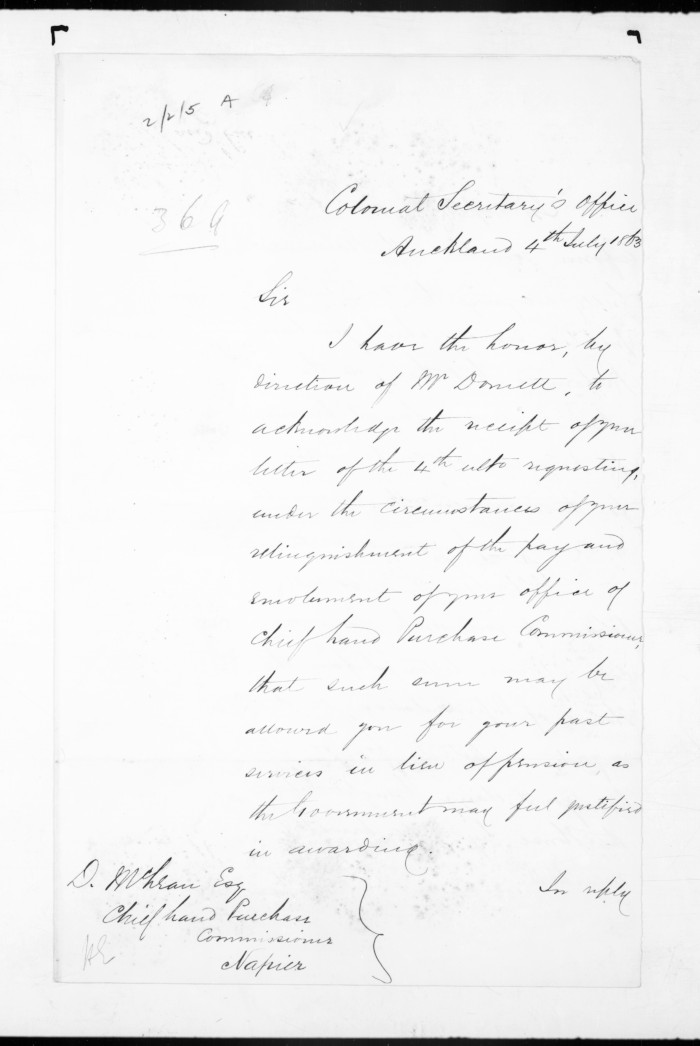 2/2/5 A
369
Colonial Secretary's Office
Auckland 4th July 1863
Sir
I have the honor, by
direction of Mr Domett, to
acknowledge the receipt of your
letter of the 4th ulto requesting,
under the circumstances of your
relinquishment of the pay and
emolument of your office of
Chief Land Purchase Commissioner,
that such sum may be
allowed you for your past
services in lieu of pension, as
the Government may feel justified
in awarding.
In reply
D. McLean Esq
Chief Land Purchase
Commissioner
Napier